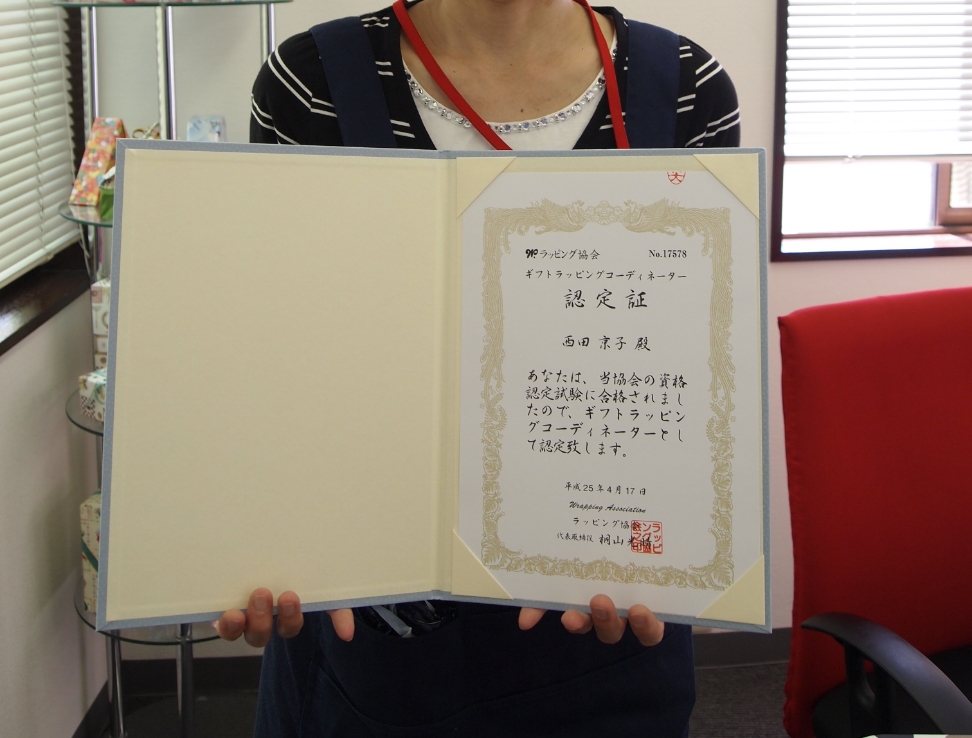 ラッピング協会 No.17578
ギフトラッピングコーディネーター
認定証
西田 京子 殿
あなたは、当協会の資格
認定試験に合格されまし
たので、ギフトラッピン
グコーディネーターとし
て認定致します。
平成25年4月17日
Wrapping Association
ラッピング協
代表取締役 桐山